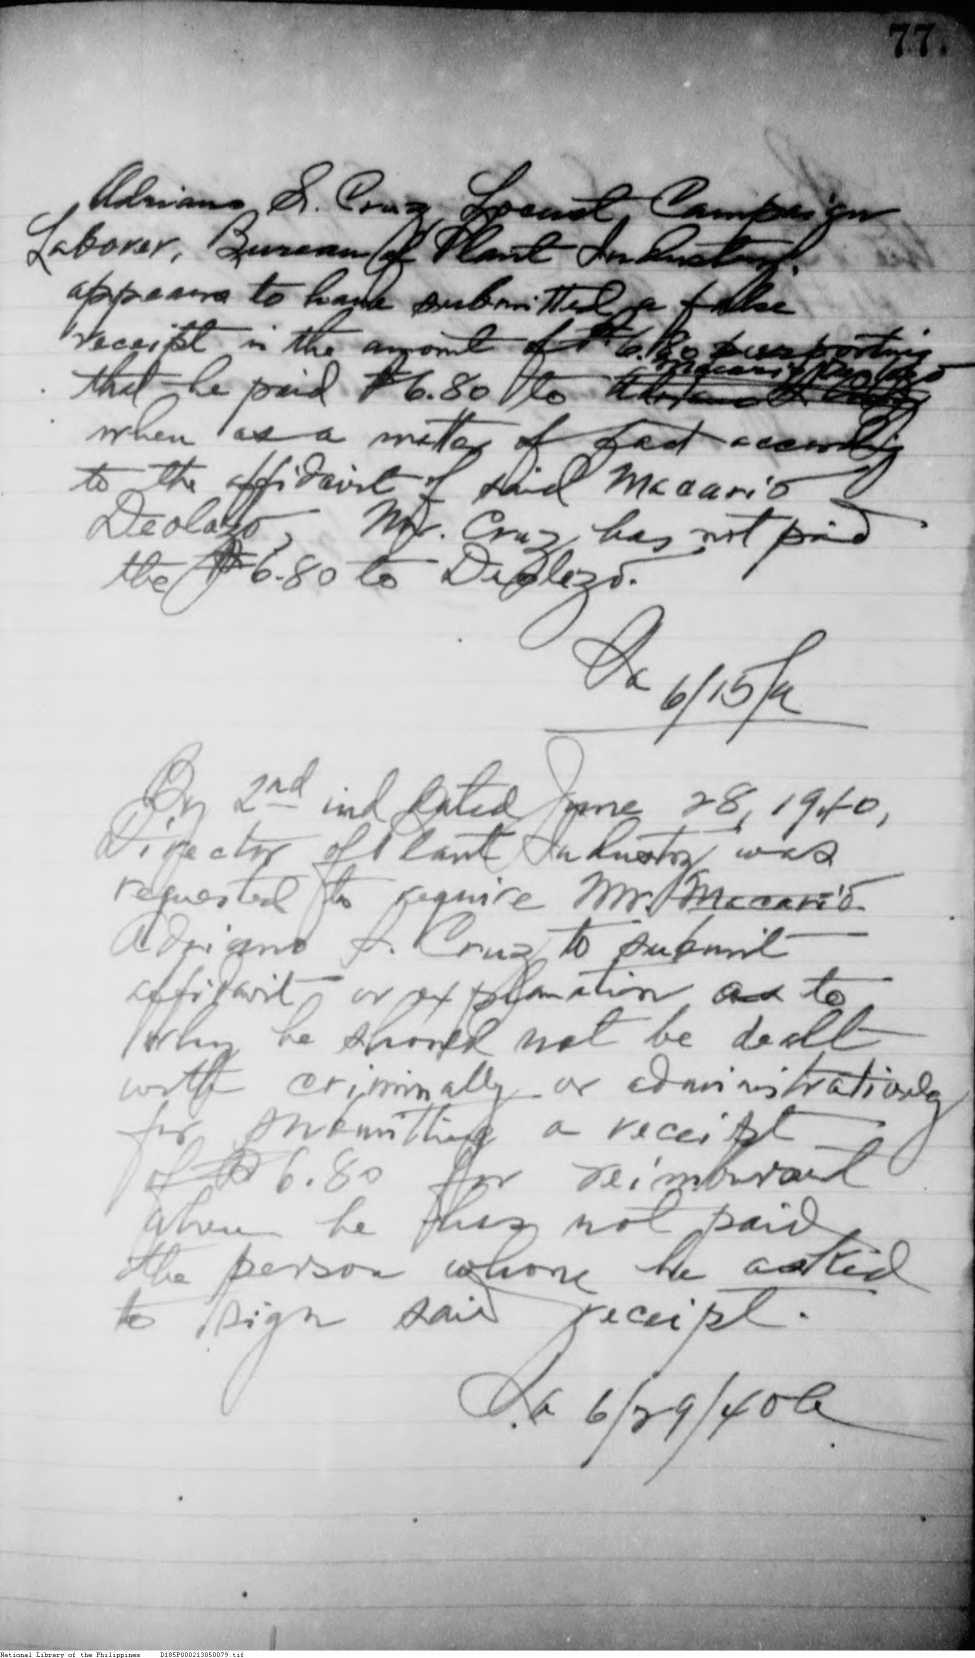 77.
Adriano S. Cruz, Locust Campaign
Laborer, Bureau of Plant Industry,
appears to have submitted a false
receipt in the amount of ₱6.80 purporting
Macario Deolazo
that he paid ₱6.80 to Adriano S. Cruz
when as a matter of fact according
to the affidavit of said Macario
Deolazo, Mr. Cruz has not paid
the ₱6.80 to Deolazo.
6/15/
By 2nd ind dated June 28, 1940,
Director of Plant Industry was
requested to require Mr. Macario
Adriano S. Cruz to submit
affidavit or explanation as to
why he should not be dealt
with criminally or administratively
for submitting a receipt
of ₱6.80 for
when he has not paid
the person whom he asked
to sign said receipt.
6/29/40
National Library of the Philippines D185P000213050079.tif